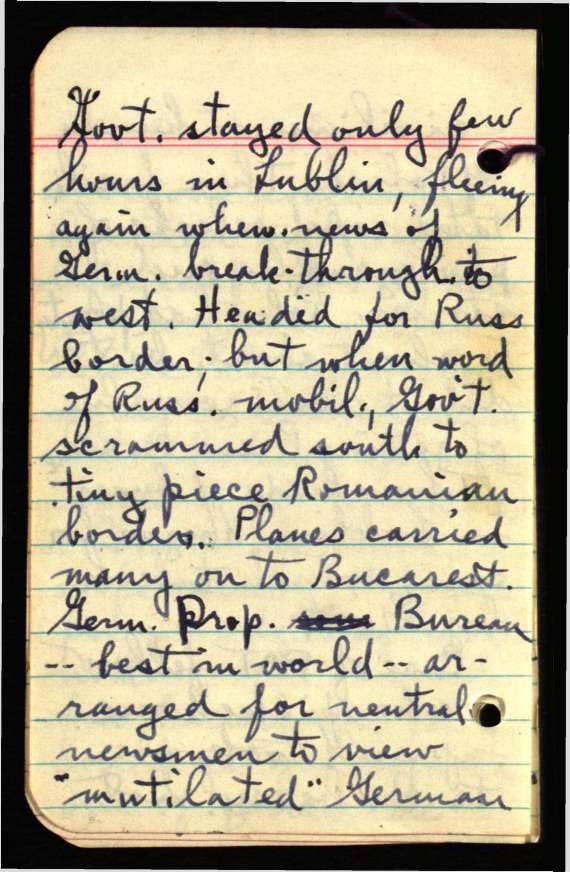 Govt. stayed only few
hours in Lublin, fleeing
again when news of
Germ. break-through to
west. Headed for Russ
border; but when word
of Russ. mobil., Gov't.
scrammed south to
tiny piece Romanian
border. Planes carried
many on to Bucarest.
Germ. Prop. Bureau
-- best in world -- ar-
ranged for neutral
newsmen to view
"mutilated" German